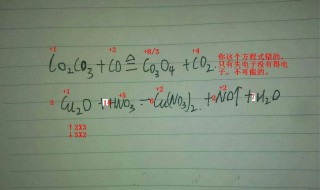 +1 +2 +8/3 +4
Co2CO3 + CO ≙ Co3O4 + CO2.
你这个方程式错的。
只有失电子没有得电
子，不可能的。
+1 +5 +2 +2
3 Cu2O + 14 HNO3 = 6 Cu(NO3)2 + 2 NO↑ + 7 H2O
↑2X3
↓3X2